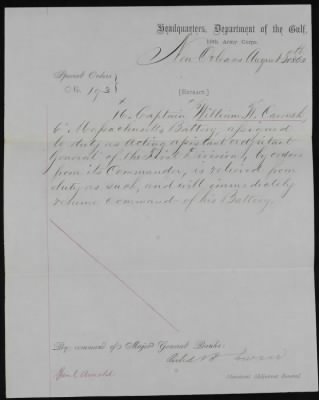 Headquarters, Department of the Gulf,
19th Army Corps.
New Orleans, August 30th
Special Orders
No. 193
[Extract.]
16. Captain William W. Carruth
6th Massachusetts Battery, assigned
to duty as Acting Assistant Adjutant
General of the First Division, by orders
from its Commander, is relieved from
duty as such, and will immediately
resume command of his Battery.
By command of Major General Banks:
Genl. Arnold
Assistant Adjutant General.